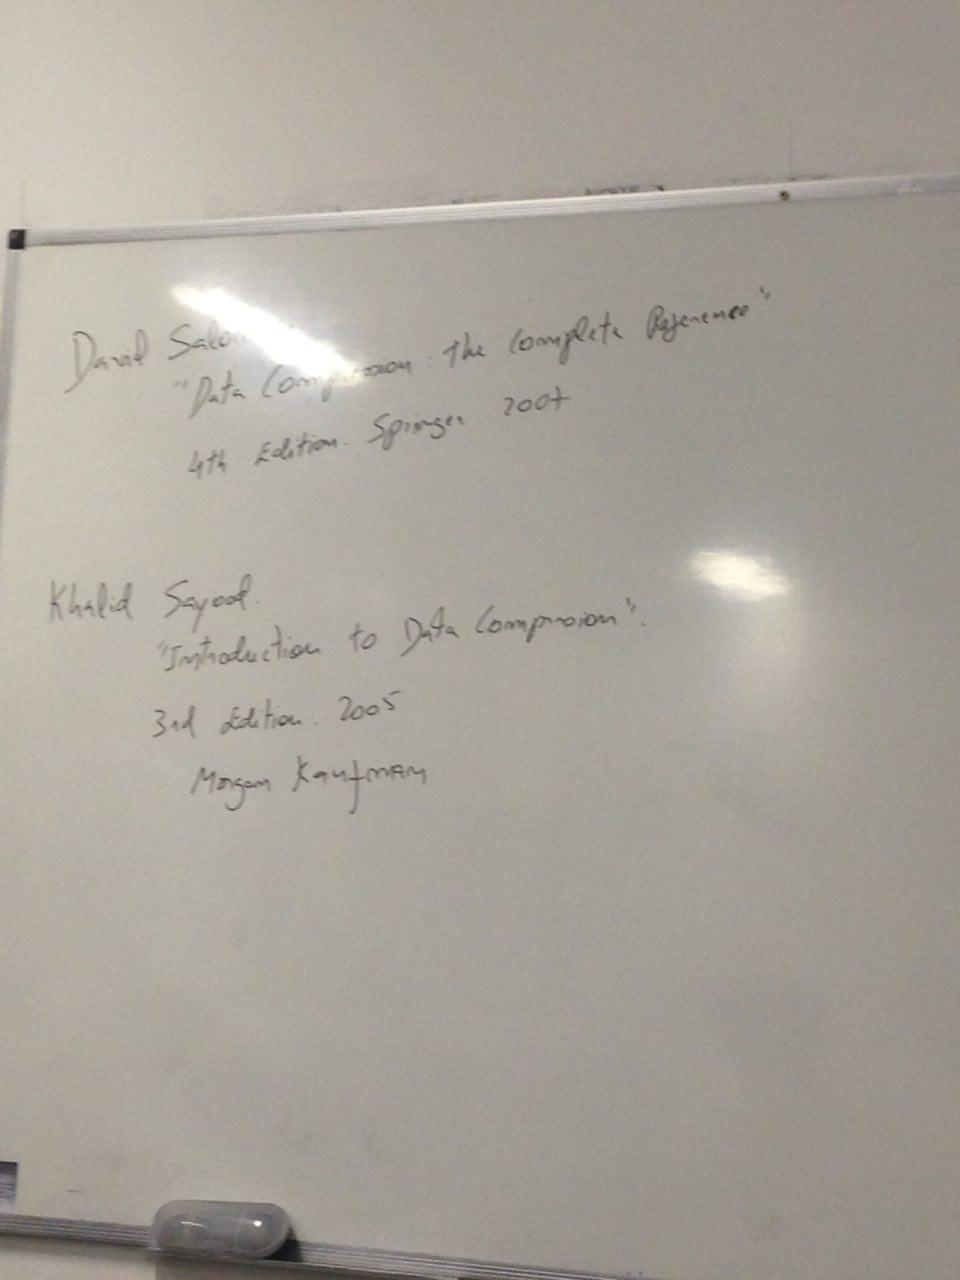 David Salo
"Data Compression: The Complete Reference"
4th Edition. Springer 2007
Khalid Sayood.
"Introduction to Data Compression".
3rd Edition. 2005
Morgan Kaufmann